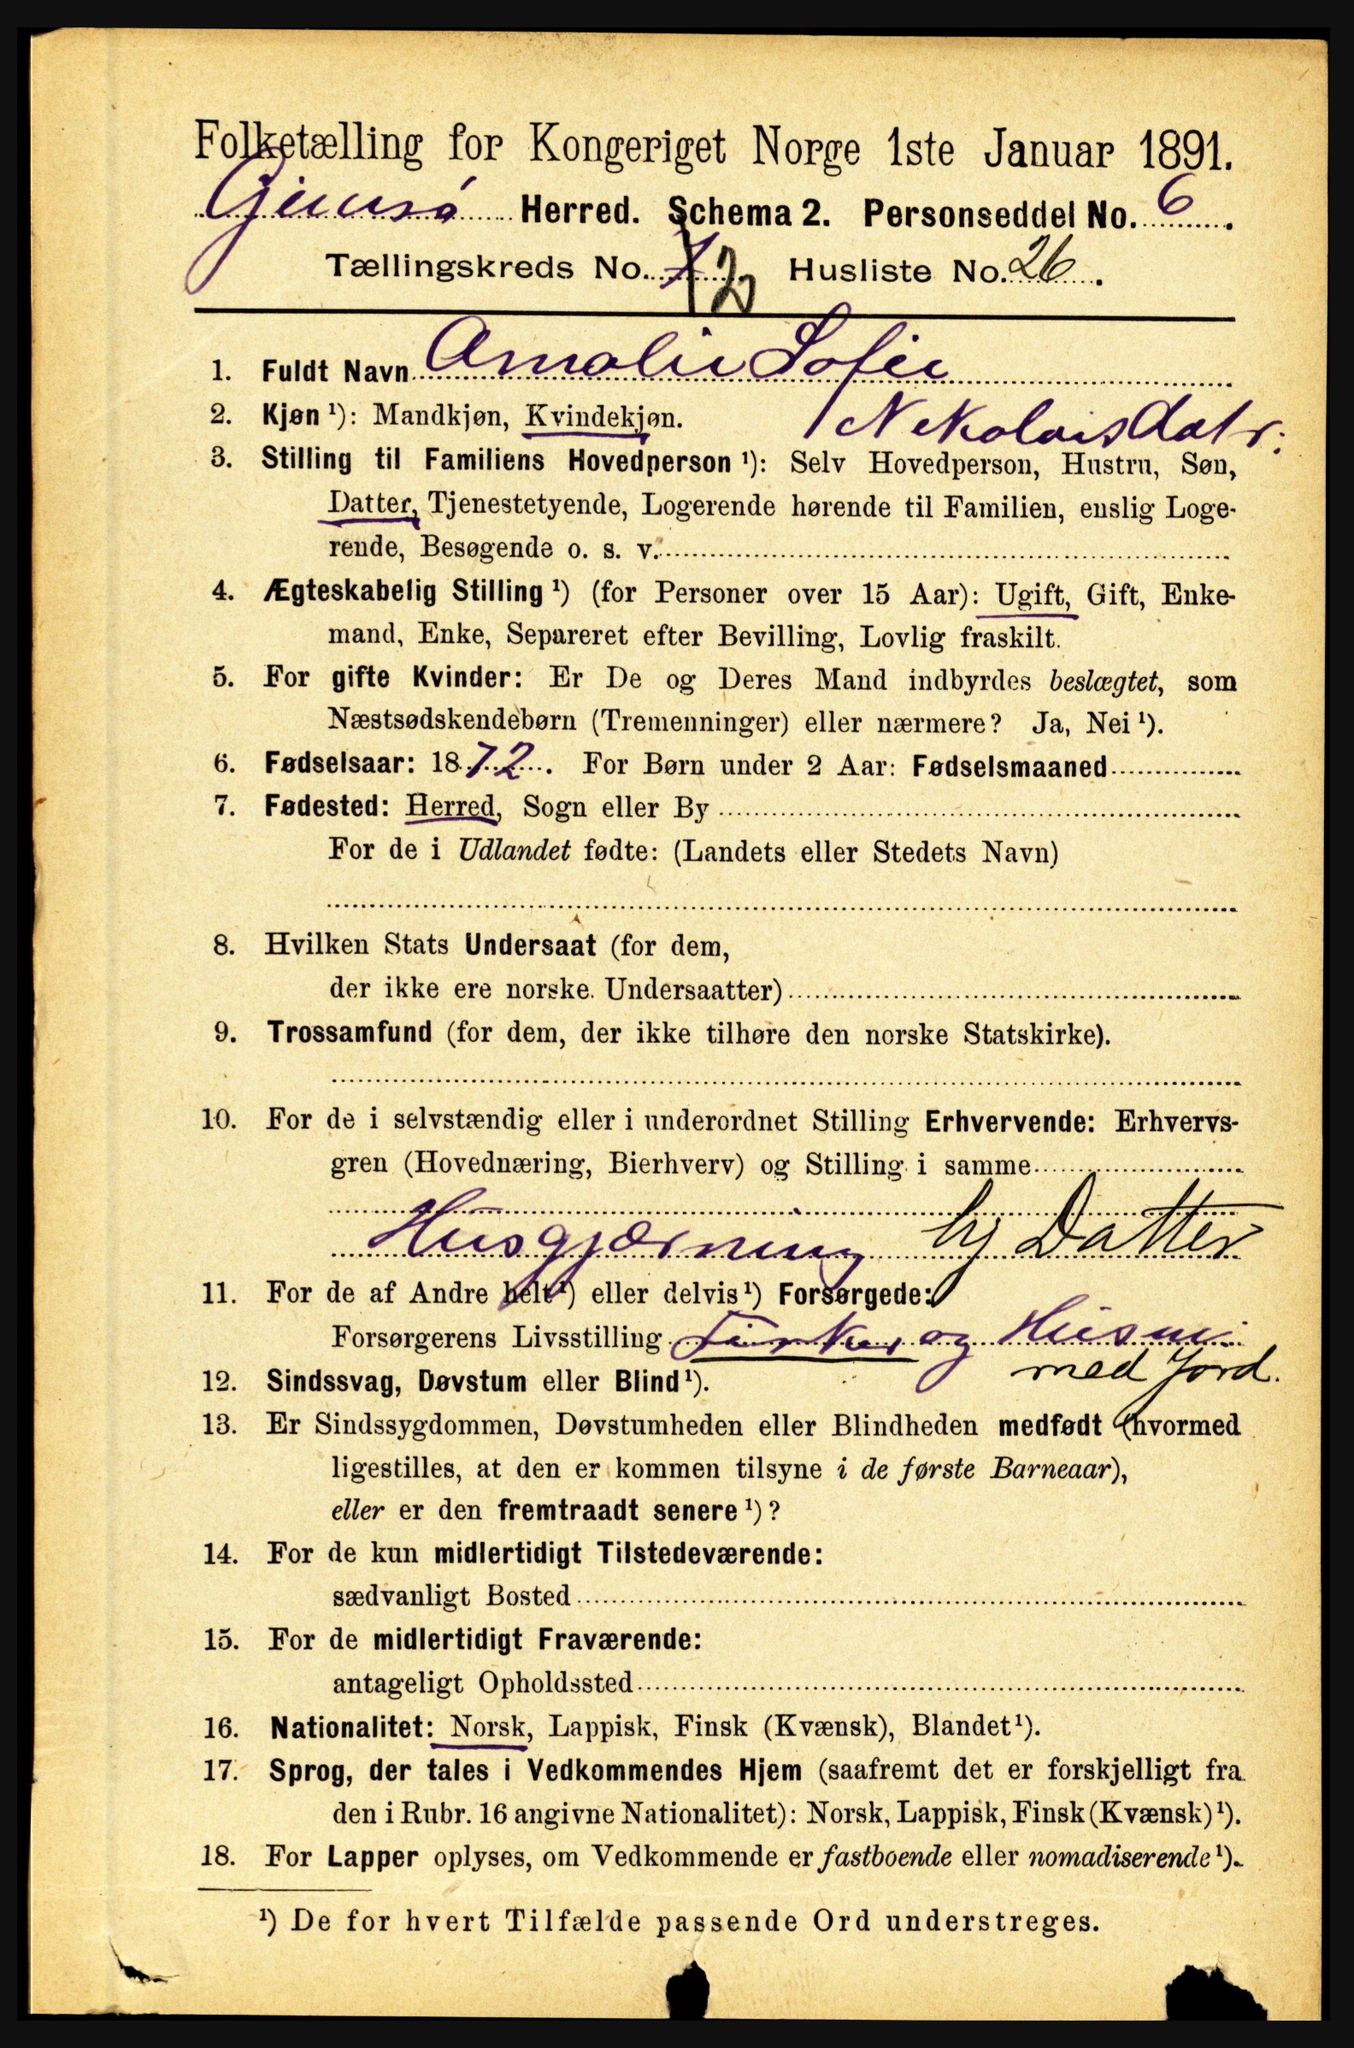 Folketælling for Kongeriget Norge 1ste Januar 1891.
Gimsø Herred. Schema 2. Personseddel No. 6.
Tællingskreds No. 2 Husliste No. 26.
1. Fuldt Navn Amalie Sofie
Nekolaisdatr.
2. Kjøn ¹): Mandkjøn, Kvindekjøn.
3. Stilling til Familiens Hovedperson ¹): Selv Hovedperson, Hustru, Søn,
Datter, Tjenestetyende, Logerende hørende til Familien, enslig Loge-
rende, Besøgende o. s. v.
4. Ægteskabelig Stilling ¹) (for Personer over 15 Aar): Ugift, Gift, Enke-
mand, Enke, Separeret efter Bevilling, Lovlig fraskilt.
5. For gifte Kvinder: Er De og Deres Mand indbyrdes beslægtet, som
Næstsødskendebørn (Tremenninger) eller nærmere? Ja, Nei ¹).
6. Fødselsaar: 1872. For Børn under 2 Aar: Fødselsmaaned
7. Fødested: Herred, Sogn eller By
For de i Udlandet fødte: (Landets eller Stedets Navn)
8. Hvilken Stats Undersaat (for dem,
der ikke ere norske Undersaatter)
9. Trossamfund (for dem, der ikke tilhøre den norske Statskirke).
10. For de i selvstændig eller i underordnet Stilling Erhvervende: Erhvervs-
gren (Hovednæring, Bierhverv) og Stilling i samme
Husgjærning hj Datter
11. For de af Andre helt ¹) eller delvis ¹) Forsørgede:
Forsørgerens Livsstilling Fisker og Husm.
med Jord.
12. Sindssvag, Døvstum eller Blind ¹).
13. Er Sindssygdommen, Døvstumheden eller Blindheden medfødt (hvormed
ligestilles, at den er kommen tilsyne i de første Barneaar),
eller er den fremtraadt senere ¹)?
14. For de kun midlertidigt Tilstedeværende:
sædvanligt Bosted
15. For de midlertidigt Fraværende:
antageligt Opholdssted
16. Nationalitet: Norsk, Lappisk, Finsk (Kvænsk), Blandet ¹).
17. Sprog, der tales i Vedkommendes Hjem (saafremt det er forskjelligt fra
den i Rubr. 16 angivne Nationalitet): Norsk, Lappisk, Finsk (Kvænsk) ¹).
18. For Lapper oplyses, om Vedkommende er fastboende eller nomadiserende ¹).
¹) De for hvert Tilfælde passende Ord understreges.